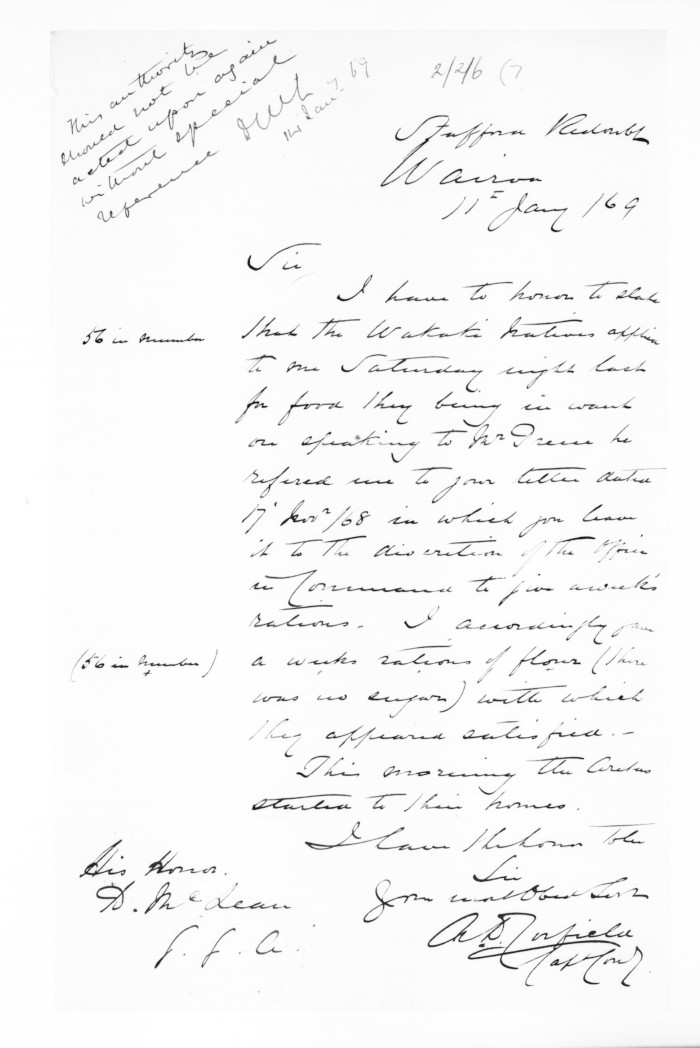 This authority
should not be
acted upon again
without special
reference
Jany 69
2/2/6 (7
Stafford Redoubt
Wairoa
11th Jany /69
Sir
I have to honor to state
56 in number
that the Wakaki Natives applied
to me Saturday night last
for food they being in want
on speaking to Mr he
refered me to your letter dated
17 Novr /68 in which you leave
it to the discretion of the Officer
in Command to give a week's
rations. I accordingly gave
(56 in number)
a weeks rations of flour (there
was no sugar) with which
they appeared satisfied.-
This morning the
started to their homes.
I have the honor to be
Sir
Your most Obed Servt
Capt Comdg
His Honor.
D. McLean